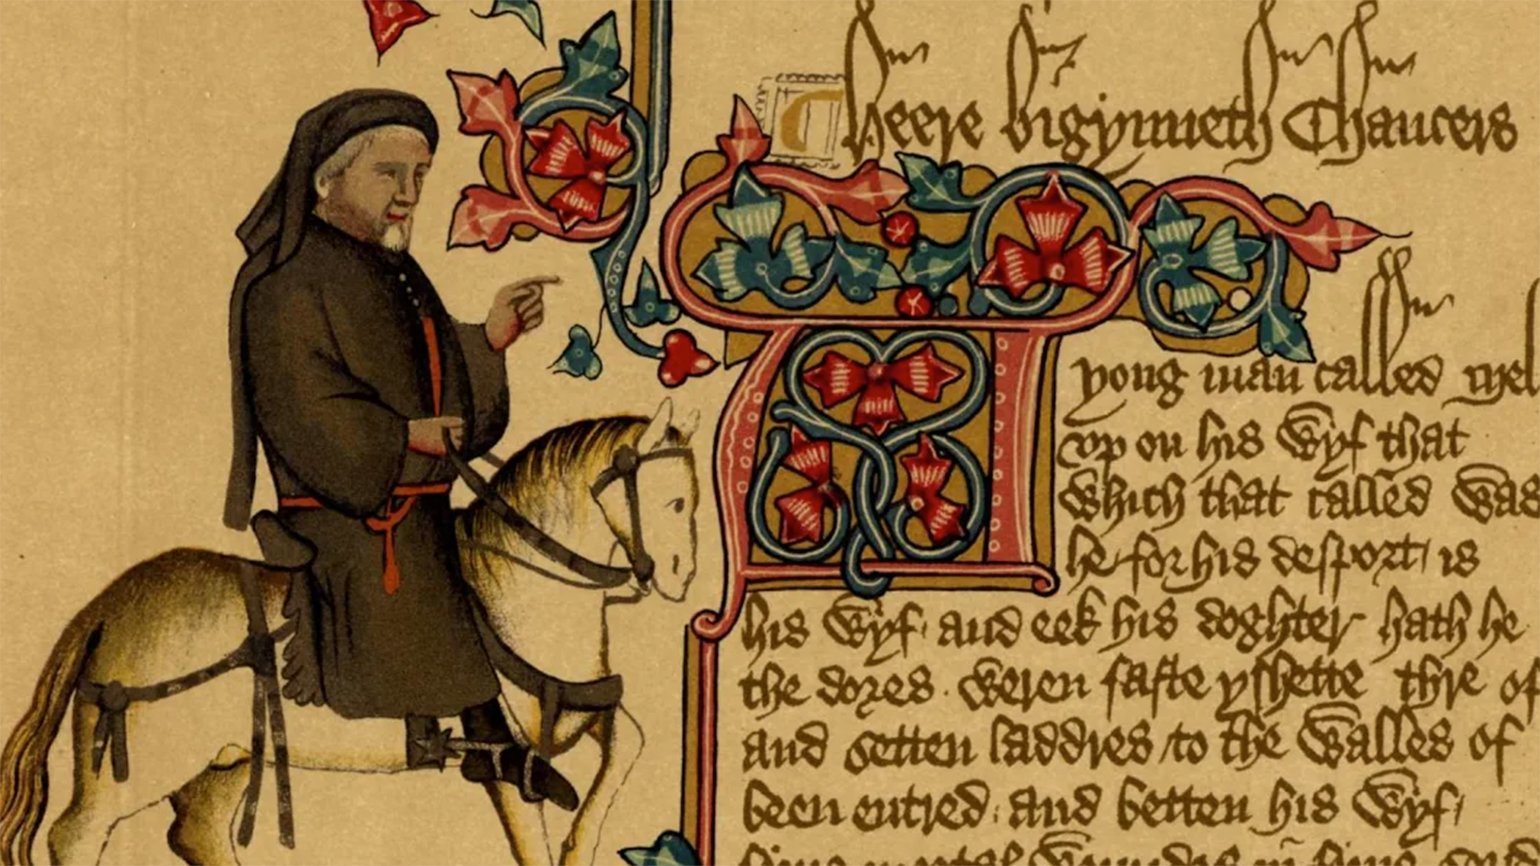 Heere bigynneth Chaucers
A
yong man called Mel
vp on his wyf that
which that called was
he for his desport is
his wyf and eek his doghter hath he
the dores weren faste yshette thre of
and setten laddres to the walles of
been entred and betten his wyf